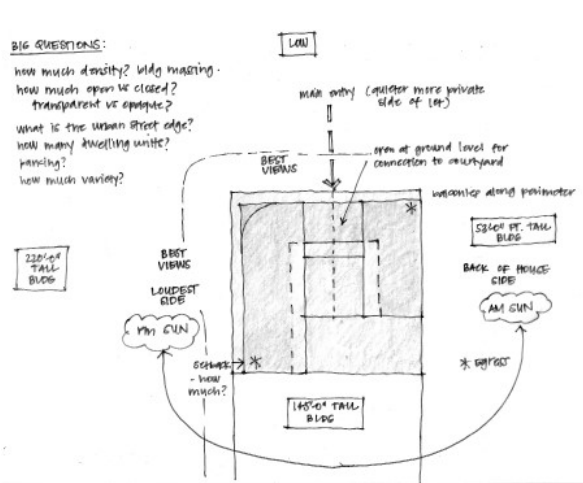 BIG QUESTIONS:
how much density? bldg massing.
how much open vs closed?
transparent vs opaque?
what is the urban street edge?
how many dwelling units?
parking?
how much variety?
LOW
main entry (quieter more private
side of lot)
open at ground level for
connection to courtyard
BEST
VIEWS
balconies along perimeter
*
53'-0" FT. TALL
BLDG
220'-0"
TALL
BLDG
BEST
VIEWS
LOUDEST
SIDE
BACK OF HOUSE
SIDE
PM SUN
AM SUN
setback
- how
much?
*
* egress
145'-0" TALL
BLDG